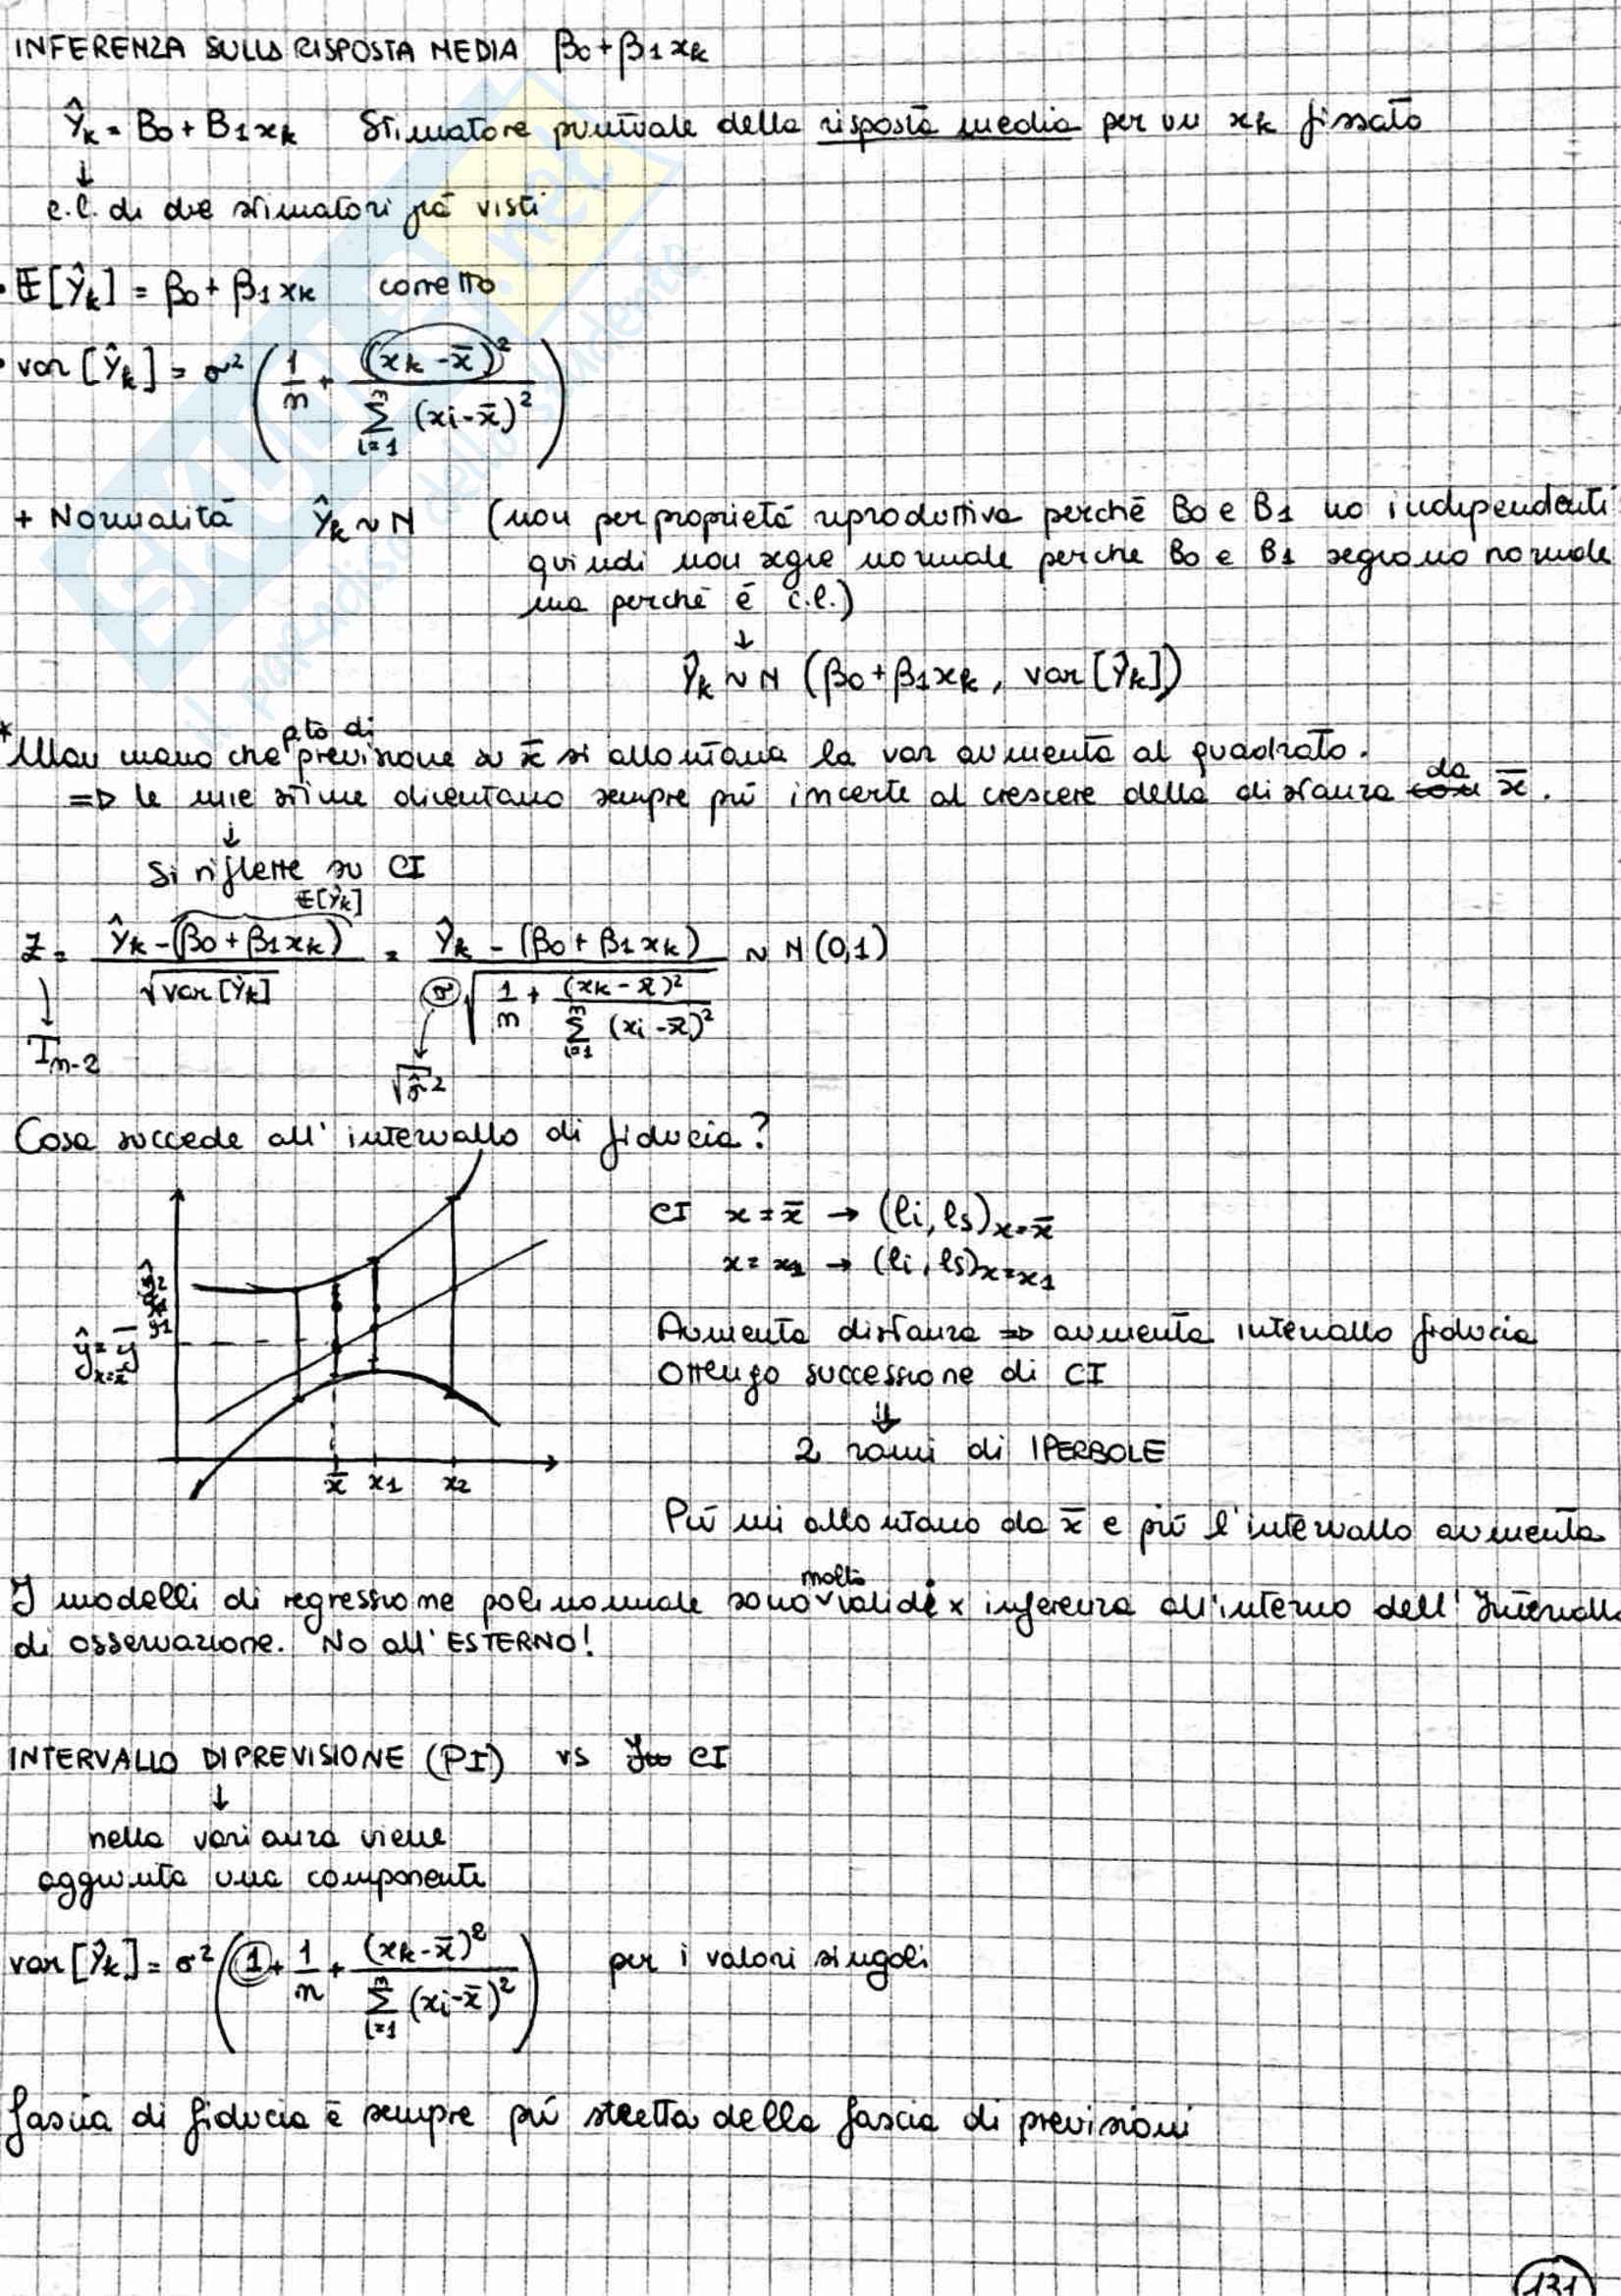 INFERENZA SULLA RISPOSTA MEDIA β0+β1xk
Ŷk = B0+B1xk Stimatore puntuale della risposta media per un xk fissato
↓
c.l. di due stimatori già visti
• E[Ŷk] = β0+β1xk corretto
• var[Ŷk] = σ² ( 1/n + (xk-x̄)² / Σ_{i=1}^{n} (xi-x̄)² )
+ Normalità Ŷk ~ N (non per proprietà riproduttiva perché B0 e B1 no indipendenti
quindi non segue normale perché B0 e B1 seguono normale
ma perché è c.l.)
↓
Ŷk ~ N (β0+β1xk, var[Ŷk])
* Man mano che pto di previsione su x̄ si allontana la var aumenta al quadrato.
=> le mie stime diventano sempre più incerte al crescere della distanza da x̄.
↓
Si riflette su CI
E[Ŷk]
Z = Ŷk-(β0+β1xk) / √var[Ŷk] = Ŷk-(β0+β1xk) / σ√( 1/n + (xk-x̄)² / Σ_{i=1}^{n} (xi-x̄)² ) ~ N(0,1)
↓
Tn-2 √σ̂²
Cosa succede all'intervallo di fiducia?
CI x=x̄ → (li, ls)x=x̄
x=x1 → (li, ls)x=x1
Aumenta distanza => aumenta intervallo fiducia
Ottengo successione di CI
⇓
2 rami di IPERBOLE
ŷ=ȳ
x=x̄
x̄ x1 x2
Più mi allontano da x̄ e più l'intervallo aumenta
I modelli di regressione polinomiale sono molto validi x inferenza all'interno dell'Intervallo
di osservazione. No all'ESTERNO!
INTERVALLO DI PREVISIONE (PI) vs CI
↓
nella varianza viene
aggiunta una componente
var[Ŷk] = σ² ( 1 + 1/n + (xk-x̄)² / Σ_{i=1}^{n} (xi-x̄)² ) per i valori singoli
fascia di fiducia è sempre più stretta della fascia di previsioni
131
SKUOLA.net
il paradiso dello studente